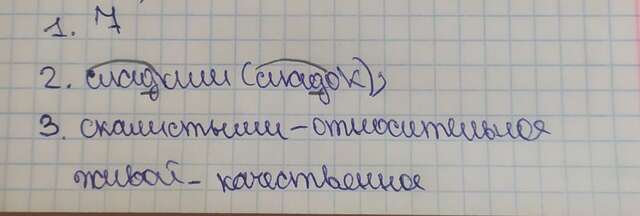 1. 7
2. сладкий (сладок),
3. скалистыми - относительное
живой - качественное